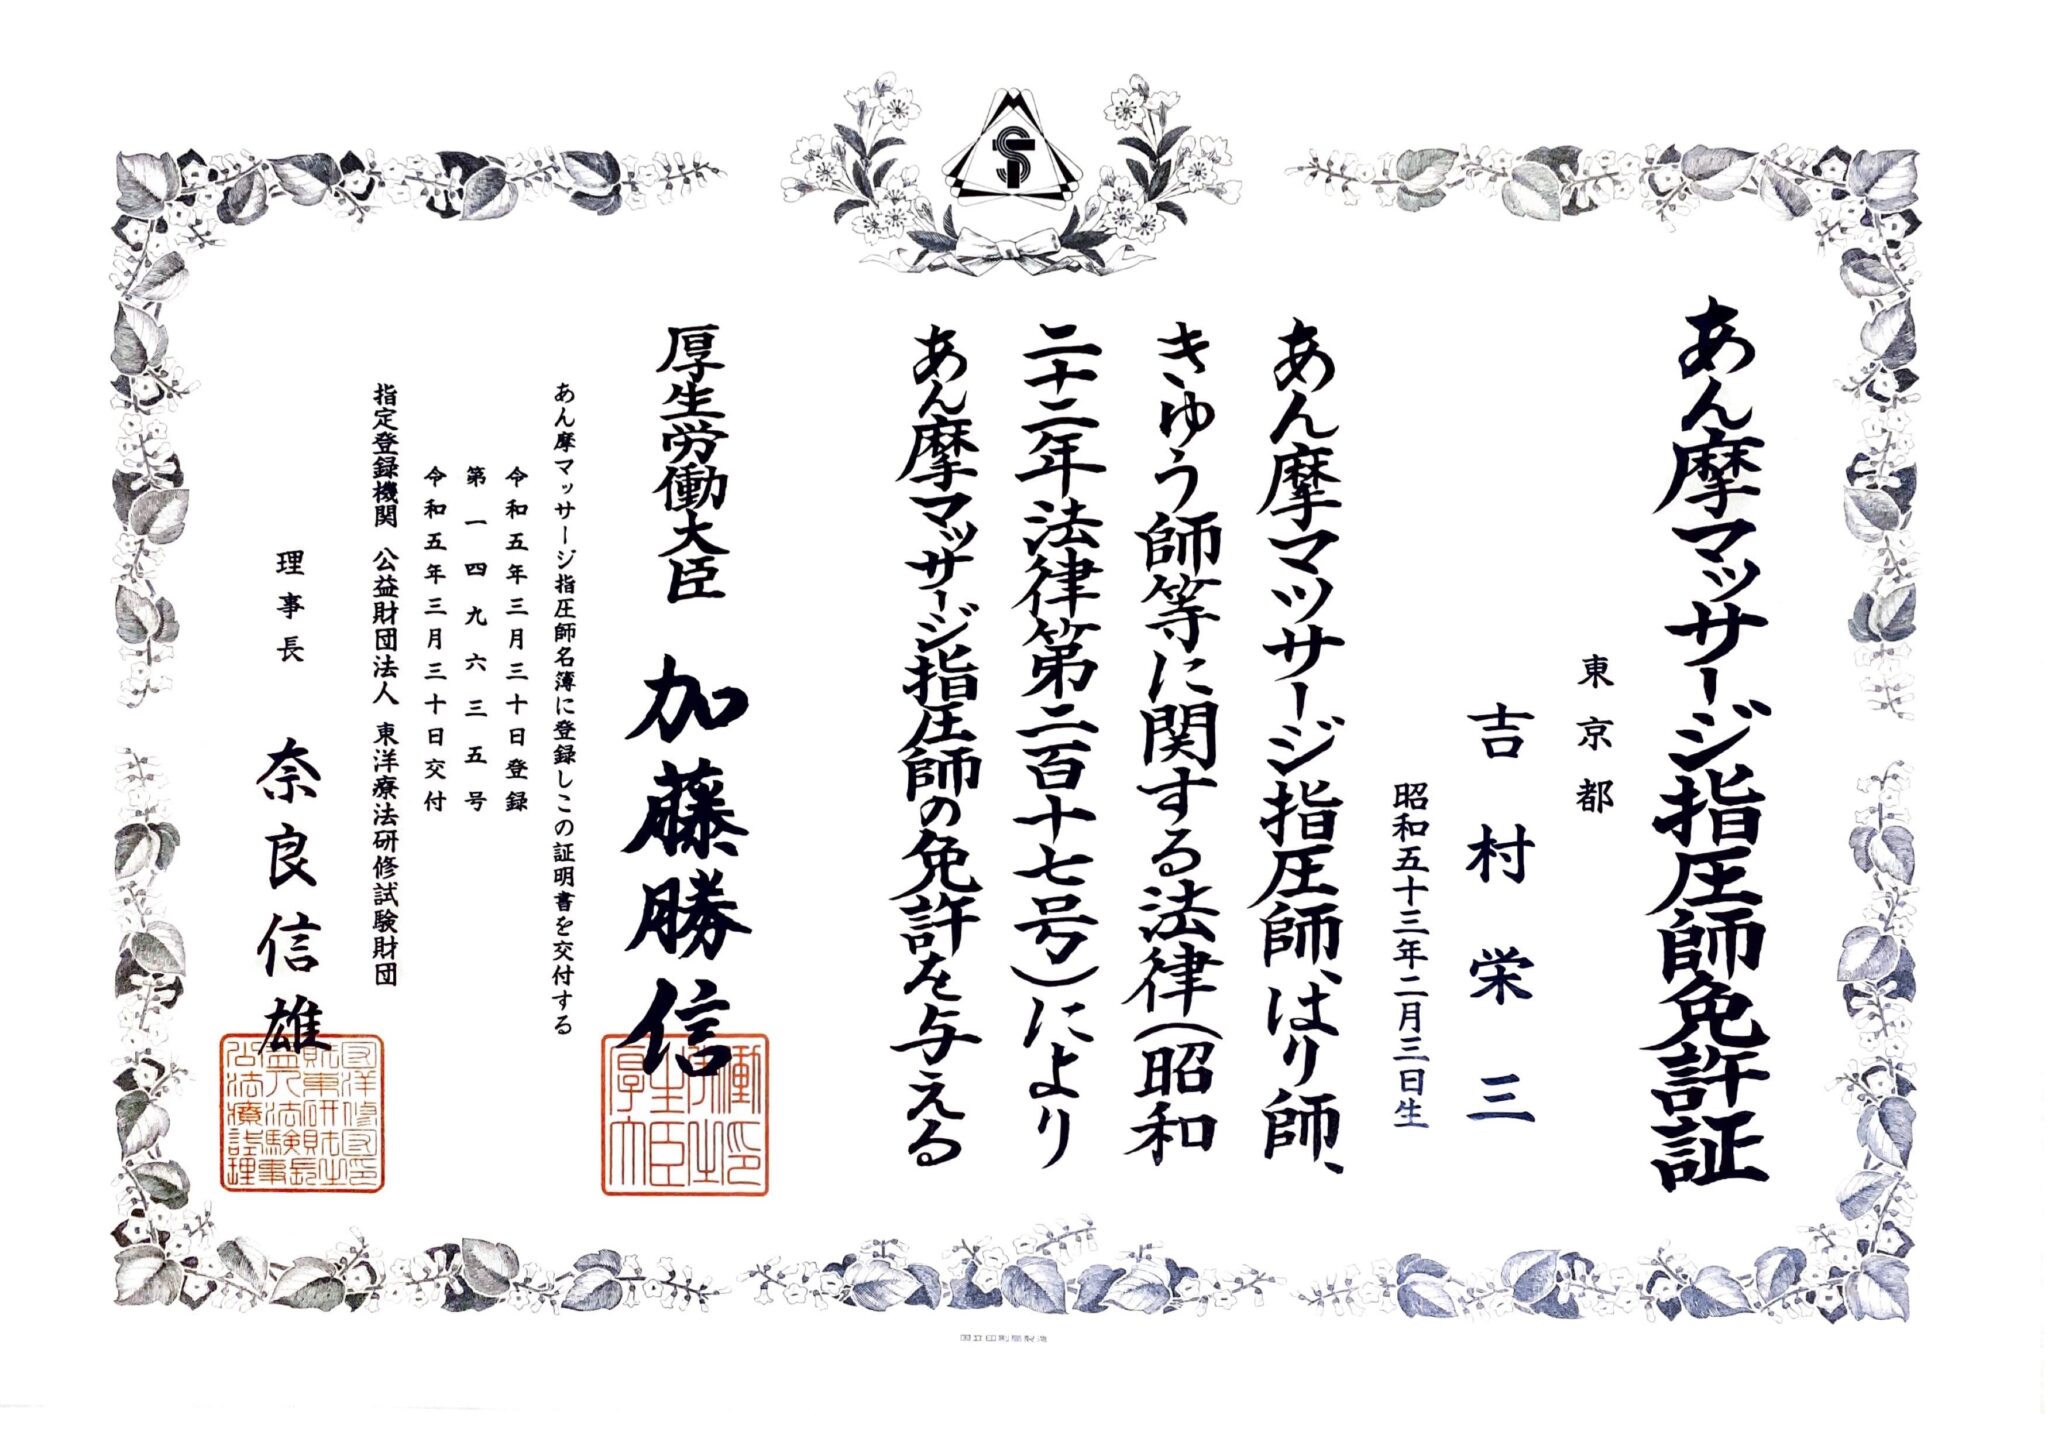 あん摩マッサージ指圧師免許証
東京都
吉村栄三
昭和五十三年二月三日生
あん摩マッサージ指圧師、はり師、
きゆう師等に関する法律(昭和
二十二年法律第二百十七号)により
あん摩マッサージ指圧師の免許を与える
厚生労働大臣 加藤勝信
あん摩マッサージ指圧師名簿に登録しこの証明書を交付する
令和五年三月三十日登録
第一四九六三五号
令和五年三月三十日交付
指定登録機関 公益財団法人 東洋療法研修試験財団
理事長 奈良信雄
国立印刷局製造